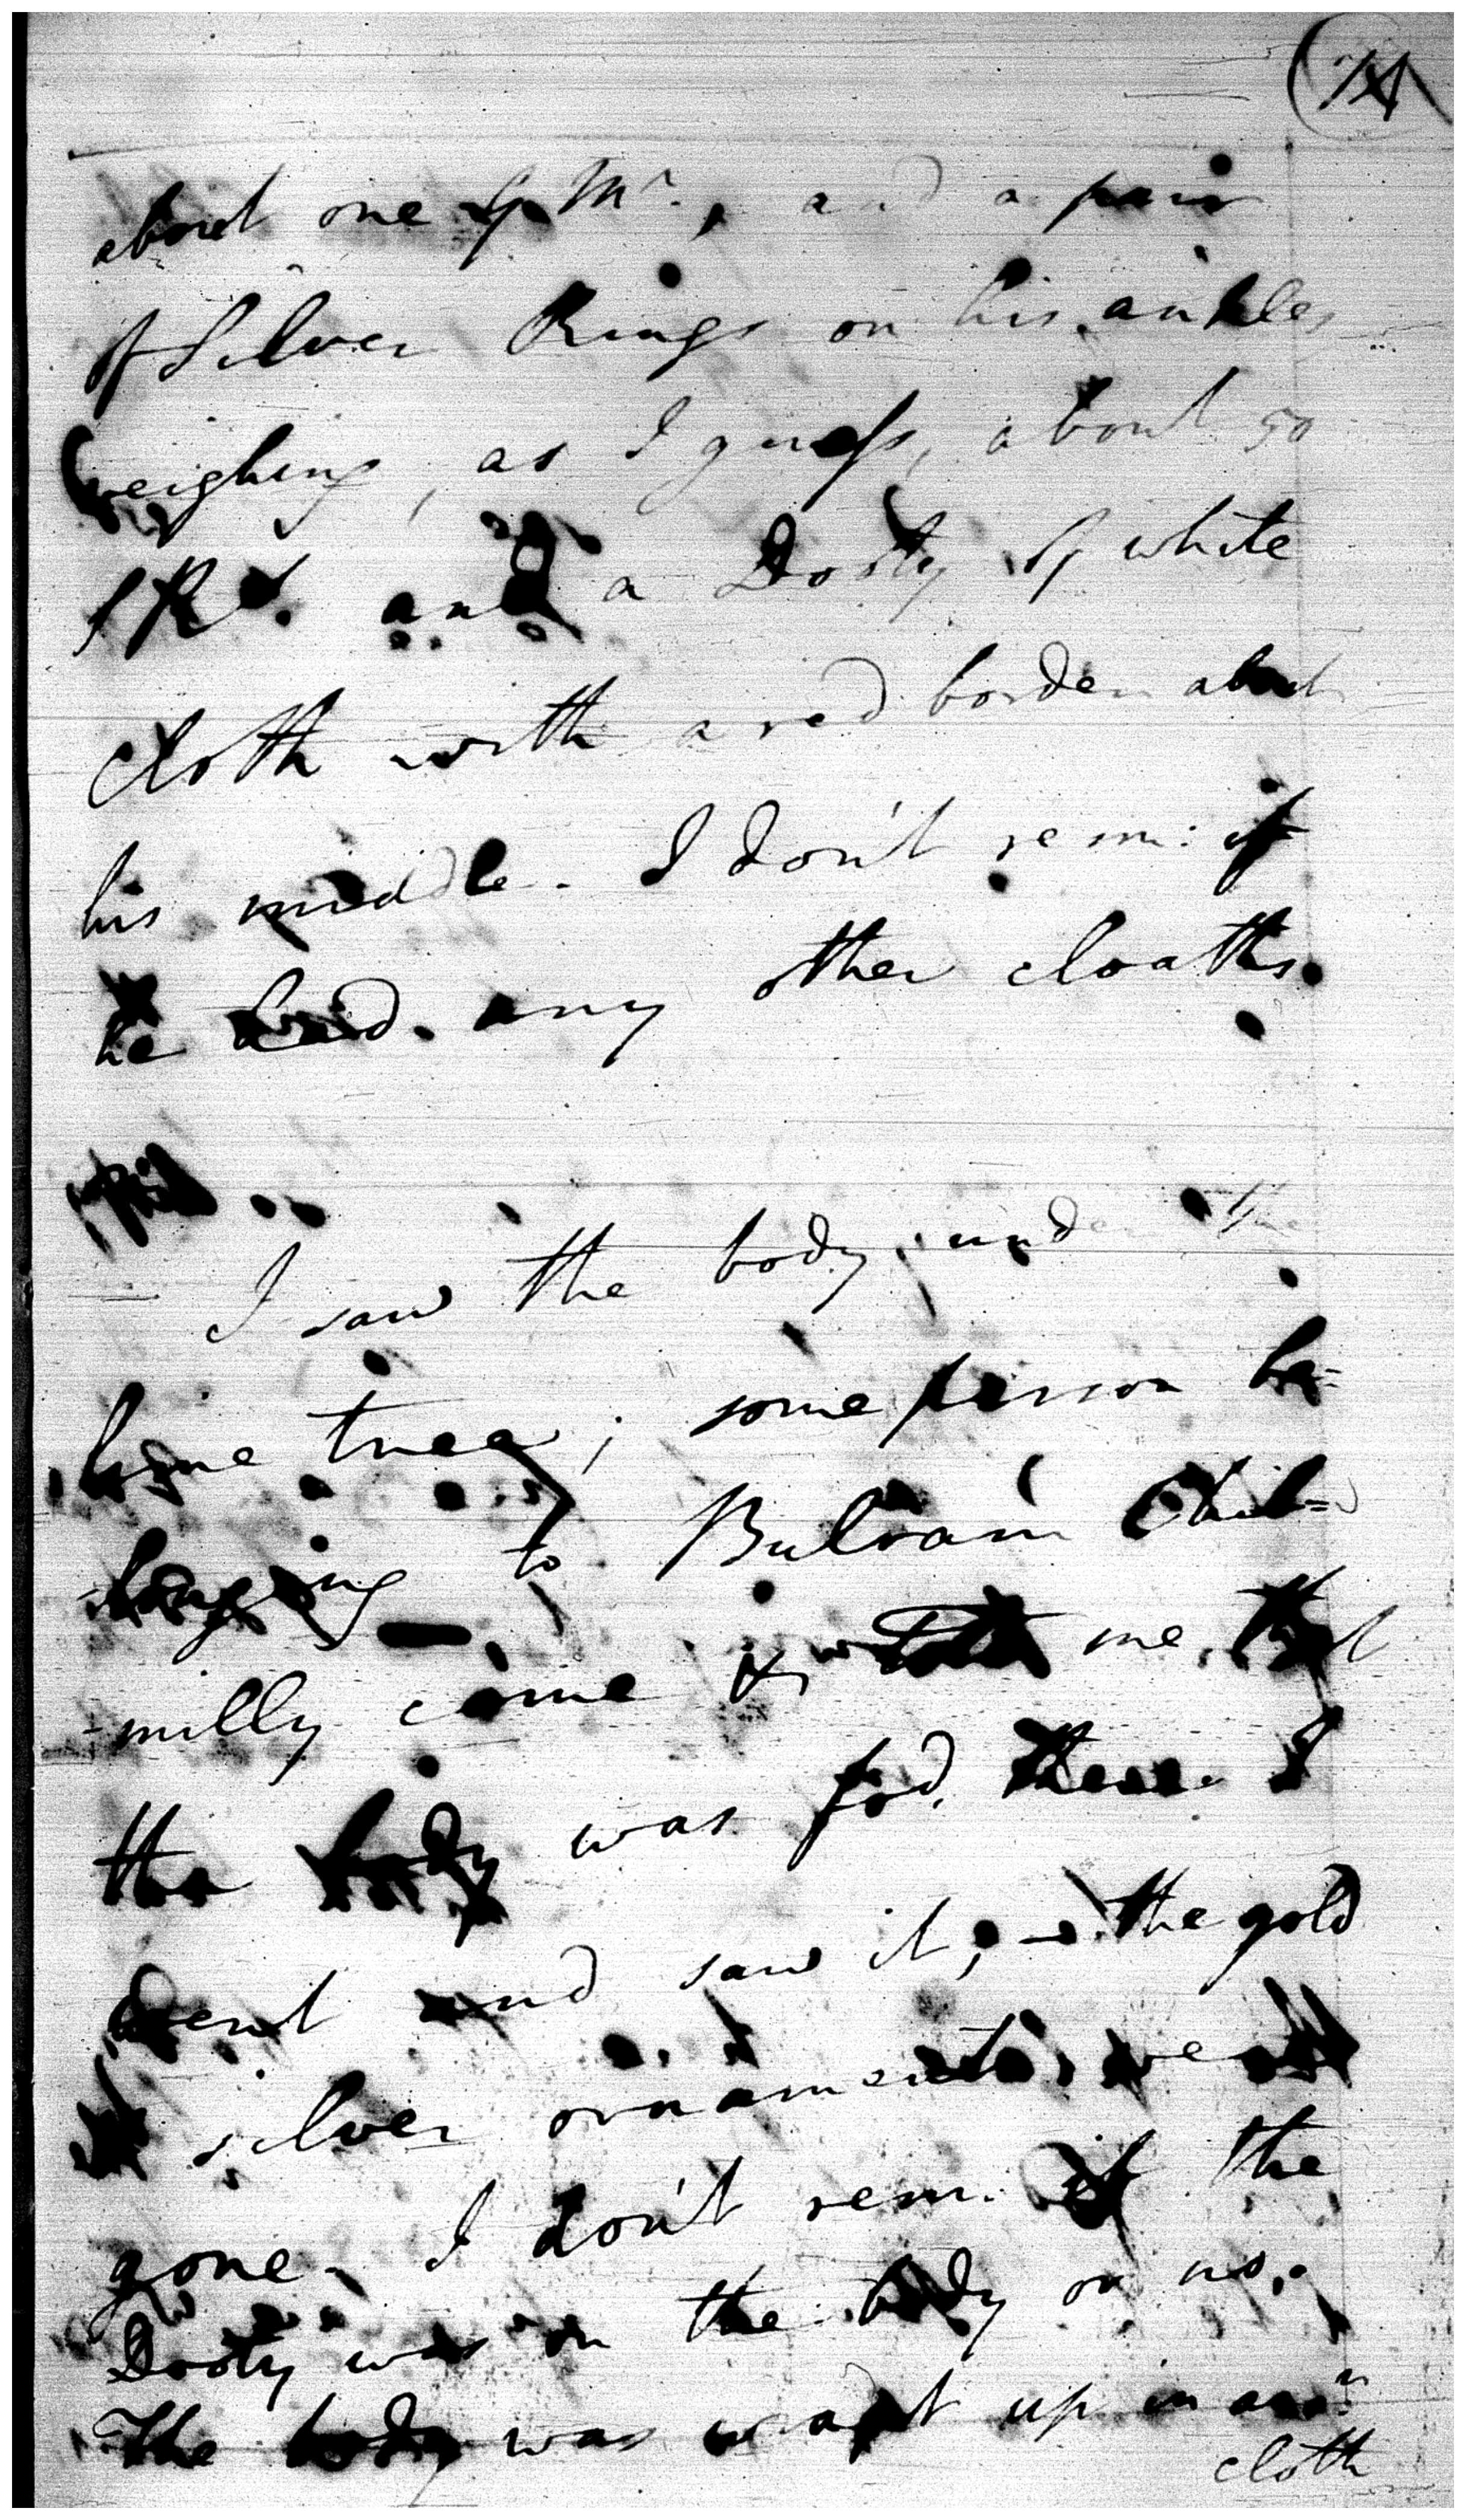 74
about one G. Mr., and a pair
of Silver Rings on his ankles
weighing, as I guess, about 50
SRs. and a Dooty of white
cloth with a red border about
his middle. I don't rem: if
he had any other cloaths.
I saw the body under the
lime tree; some person be=
=longing to Bulram Chil=
=milly came & told me that
the body was fod. there. I
went and saw it, the gold
& silver ornaments were
gone. I don't rem. if the
Dooty was on the body or no.
The body was wrapt up in anor.
cloth